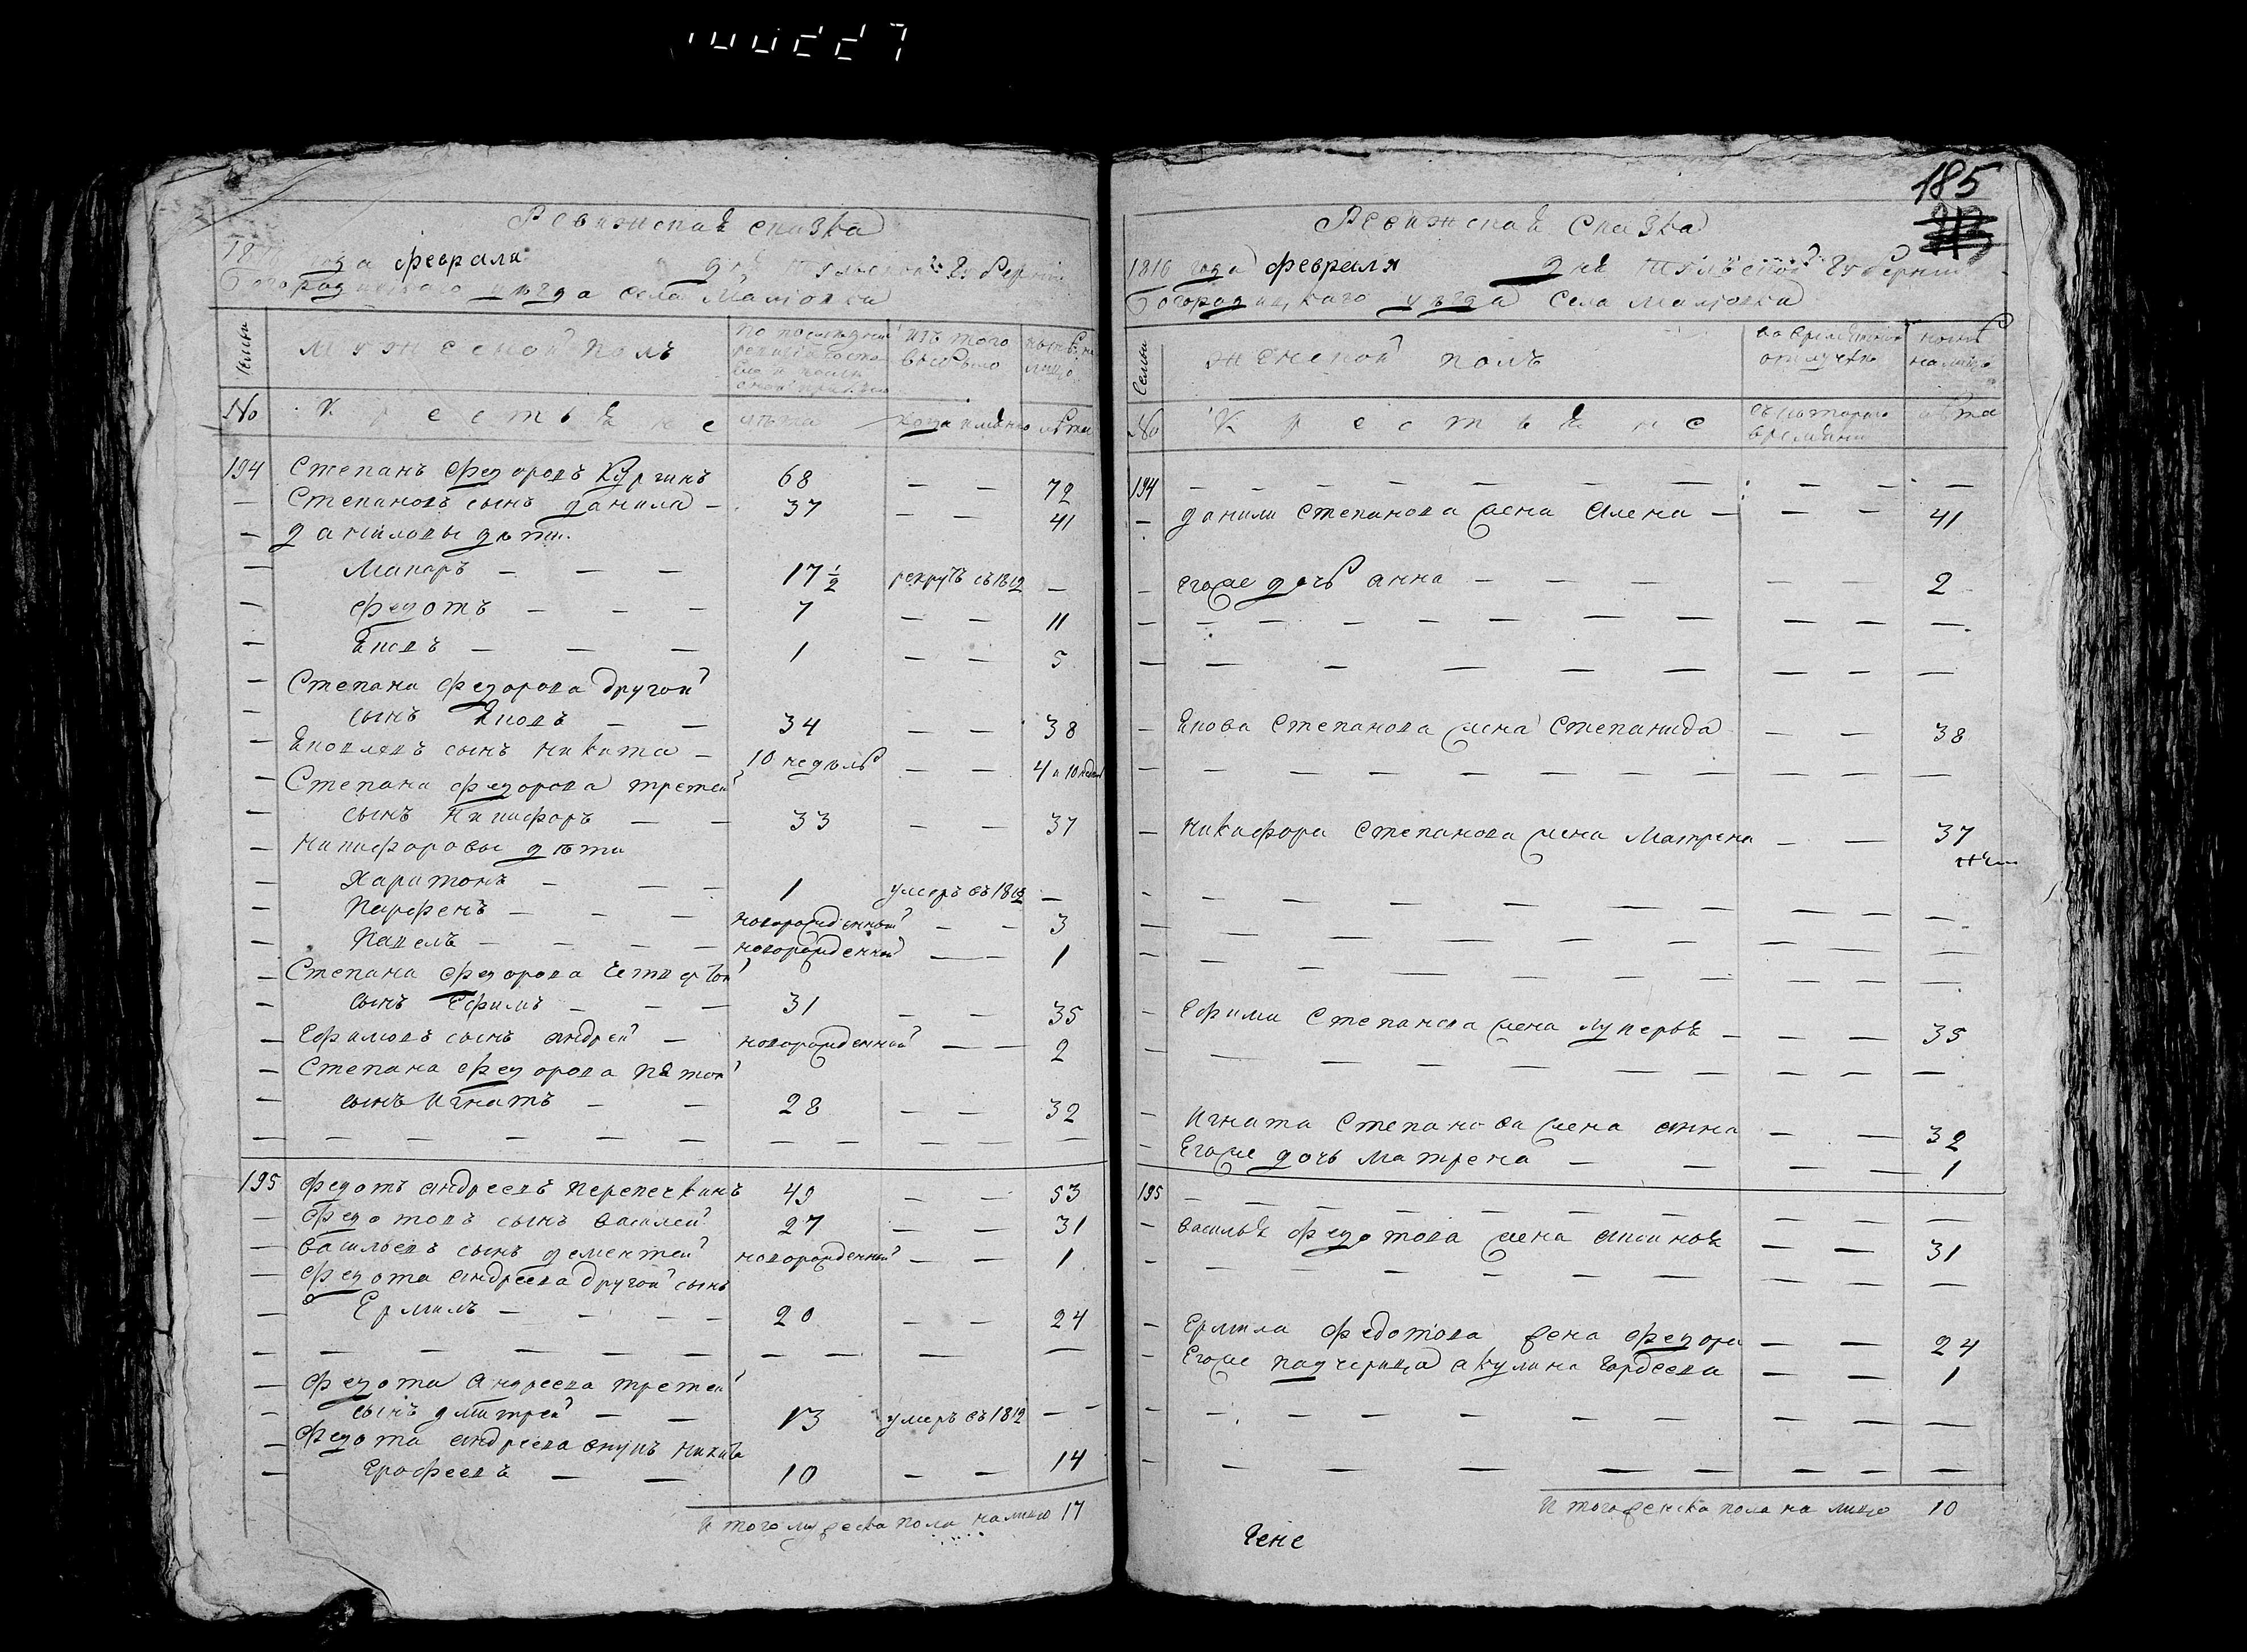 185
Ревижская сказка
года февраля дня Тульской Губернии
Богородицкаго уѣзда села Малювки
Семьи
мужеской полъ
По последней ревизии состояло и после оной прибыло
Изъ того выбыло
ныне на лицо
No
Крестьяне
лѣта
когда имянно
лѣта
194 Степанъ Федоровъ Кургинъ 68 — — 72
— Степановъ сынъ данила — 37 — — 41
— даниловы дѣти
— Макаръ — — — 17 1/2 рекрутъ съ 1812 —
— Федотъ — — — 7 — — 11
— Яковъ — — — 1 — — 5
— Степана Федорова другой
— сынъ Яковъ — — 34 — — 38
— Яковлевъ сынъ никита — 10 недѣль — — 4 и 10 недель
— Степана Федорова третей
— сынъ Никифоръ — — 33 — — 37
— Никифоровы дѣти
— Харитонъ — — — 1 умеръ въ 1812 —
— Парфенъ — — — новорожденной — — 3
— Павелъ — — — — новорожденной — — 1
— Степана Федорова четвертой
— сынъ Ефимъ — — — 31 — — 35
— Ефимовъ сынъ андрей — новорожденной — — 2
— Степана Федорова пятой
— сынъ Игнатъ — — 28 — — 32
— — — — — — — — — — — —
195 Федотъ андреевъ Перепечкинъ 49 — — 53
— Федотовъ сынъ василей 27 — — 31
— васильевъ сынъ дементей новорожденной — — 1
— Федота андреева другой сынъ
— Ермилъ — — — — 20 — — 24
— — — — — — — — — — —
— Федота Андреева третей
— сынъ дмитрей — — 13 умеръ въ 1812 — —
— Федота андреева внукъ никита
— Ерофеевъ — — 10 — — 14
Итого мужеска пола налицо 17
Ревижская Сказка
1816 года февраля дня Тульской Губернии
Богородицкаго уѣзда Села Малювки
Семьи
женской полъ
во временной отлучке
ныне налицо
No
Крестьяне
съ котораго времяни
лѣта
194 — — — — — — — — — —
— данилы Степанова жена Алена — — — 41
— егоже дочь анна — — — — 2
— — — — — — — — — — — —
— — — — — — — —
— Якова Степанова жена Степанида — — 38
— — — — — — — — — — —
— никифора Степанова жена Матрена — — 37
— — — — — — — — — —
— — — — — — — — — —
— — — — — — — — — —
— Ефима Степанова жена Лукерья — — — 35
— — — — — — — — —
— Игната Степанова жена анна — — 32
— Егоже дочь матрена — — — — 1
195 — — — — — — — — —
— василья Федотова жена аксинья — — 31
— — — — — — — — — —
— Ермила Федотова жена Федора — — 24
— Егоже падчерица акулина Гордеева — — 1
— — — — — — — — — —
— — — — — — — — —
Итого женска пола на лицо 10